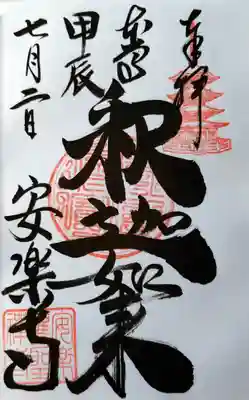 奉拝
本尊
釈迦如来
甲辰
七月二日
安楽寺